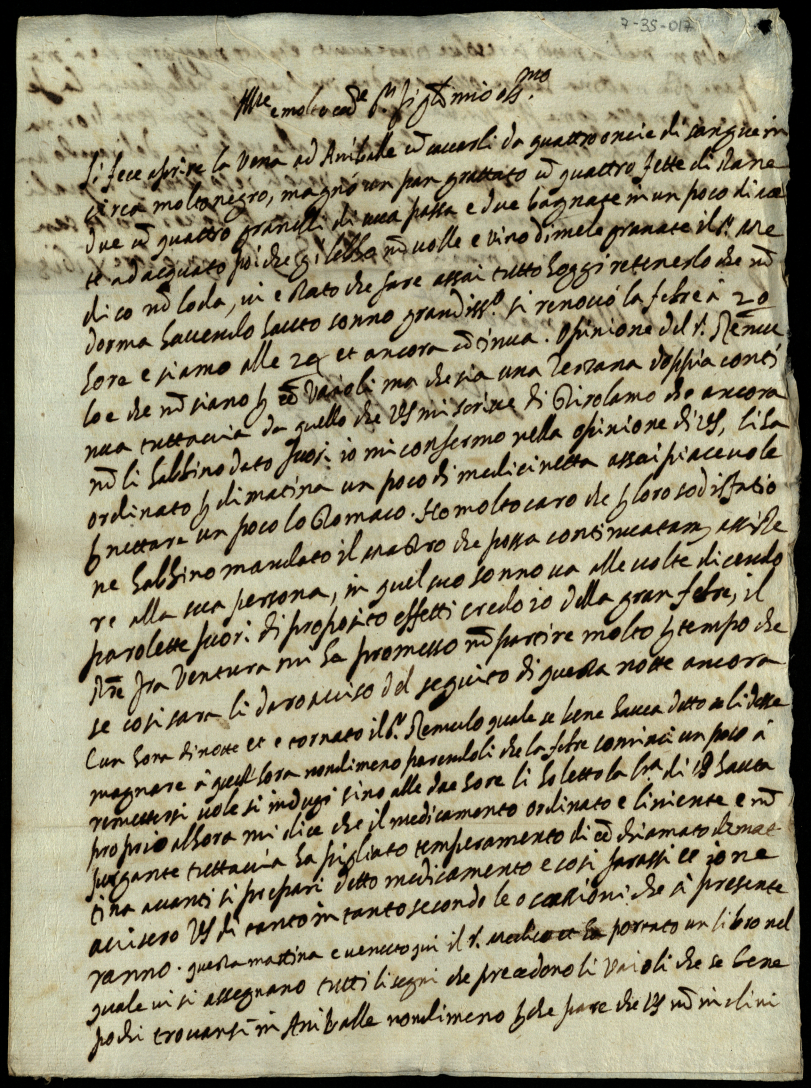 7-35-017
Ill.re e molto ecc.te S.r figl.o mio oss.mo
Si fece aprire la vena ad Aniballe cō cavarli da quattro oncie di sangue in
circa molto negro, magnó un pan grattato cō quattro fette di pane
due cō quattro granelli di uva passa e due bagnate in un poco di ace
to ad acquato poi che gi lesso nō volle e vino di mele granate il S.r Me
dico nō loda, vi e stato che fare assai tutto hoggi retenerlo che nō
dorma havendo havuto sonno grandiss.o si renovó la febre à 20
hore e siamo alle 24 et ancora cōtinua. Opinione del S.r Romu
lo e che nō siano vaioli ma che sia una terzana doppia conti
nua tuttavia da quello che VS mi scrive di Girolamo che ancora
nō li habbino dato fuori io mi confermo nella opinione di VS, li ha
ordinato p dimatina un poco di medicinetta assai piacevole
p nettare un poco lo stomaco. Ho molto caro che p loro sodisfatio
ne habbino mandato il mastro che possa continuatam. assiste
re alla sua persona, in quel suo sonno va alle volte dicendo
parolette fuori di proposito effetti credo io della gran febre, il
Rde fra Ventura mi ha promesso nō partire molto p tempo che
se cosi sara li daro aviso del seguito di questa notte ancora
E un hora di notte et e tornato il S.r Romulo quale se bene havea detto se li desse
magnare à quest hora nondimeno parendoli che la febre cominci un poco à
remettersi vole si indugi sino alle due hore li ho letto la l.ra di VS havuta
proprio alhora mi dice che il medicamento ordinato e liniente e nō
purgante tuttavia ha pigliato temperamento di eē chiamato dimat
tina avanti si prepari detto medicamento e cosi farassi et io ne
avisero VS di tanto in tanto secondo le occassioni che si presente
ranno. questa mattina e venuto qui il S.r Medico et ha portato un libro nel
quale vi si assegnano tutti li segni che precedono li vaioli che se bene
pochi trovansi in Aniballe nondimeno p che pare che VS nō inclini